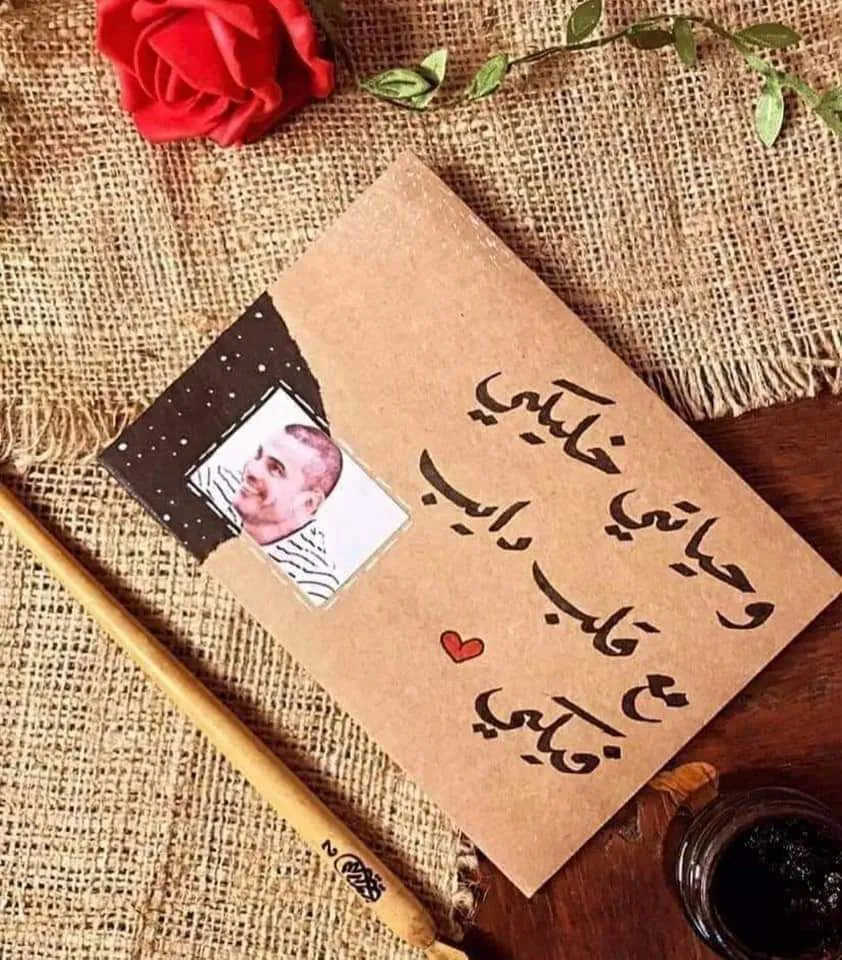 وحياتي خليكي
مع قلب دايب
فيكي
2